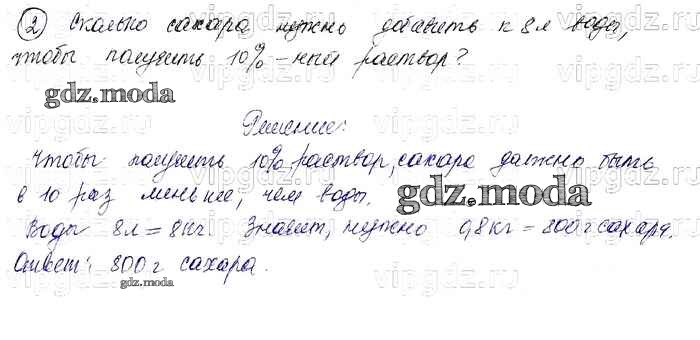 2 Сколько сахара нужно добавить к 8л воды,
чтобы получить 10%-ный раствор?
gdz.moda
Решение:
Чтобы получить 10% раствор, сахара должно быть
в 10 раз меньше, чем воды.
gdz.moda
Воды 8л = 8кг. Значит, нужно 0,8кг = 800г сахара.
Ответ: 800г сахара.
gdz.moda
vipgdz.ru